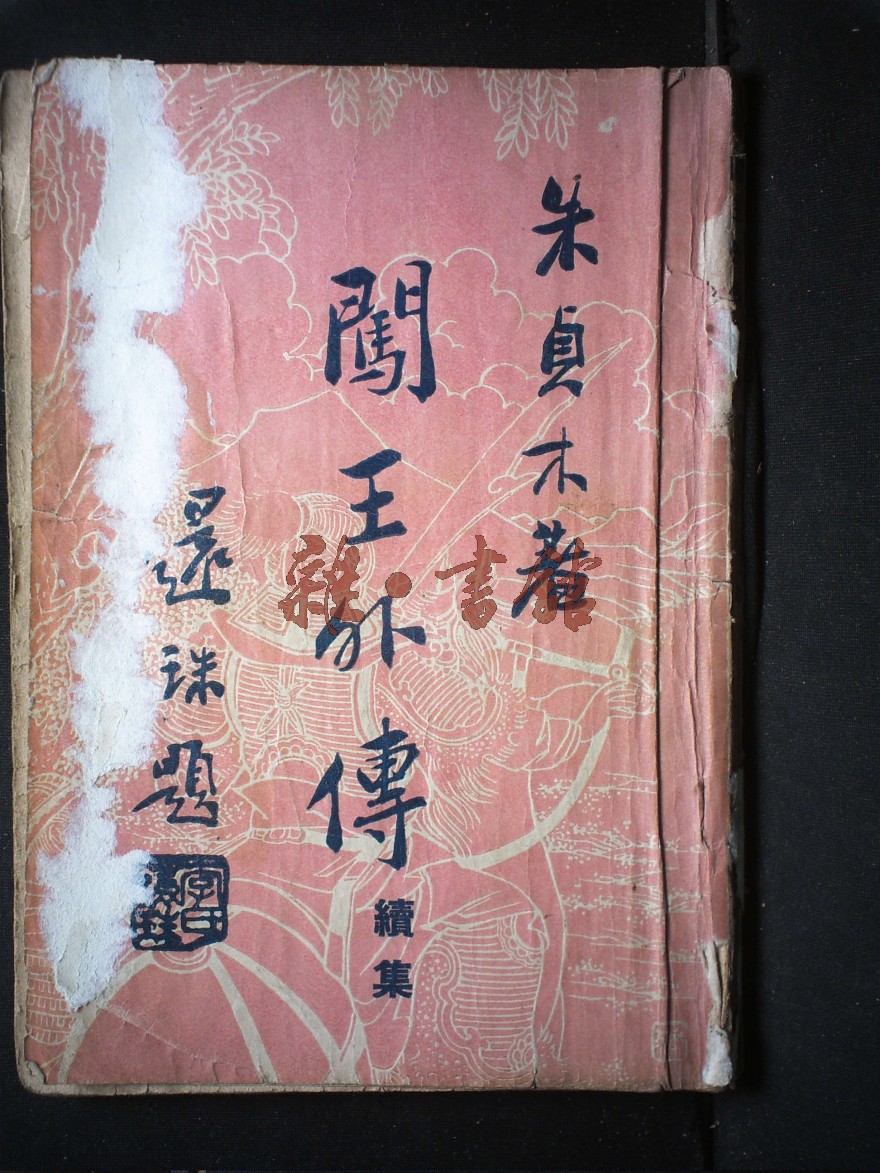 朱貞木著
闖王外傳
續集
還珠題
雜·書館